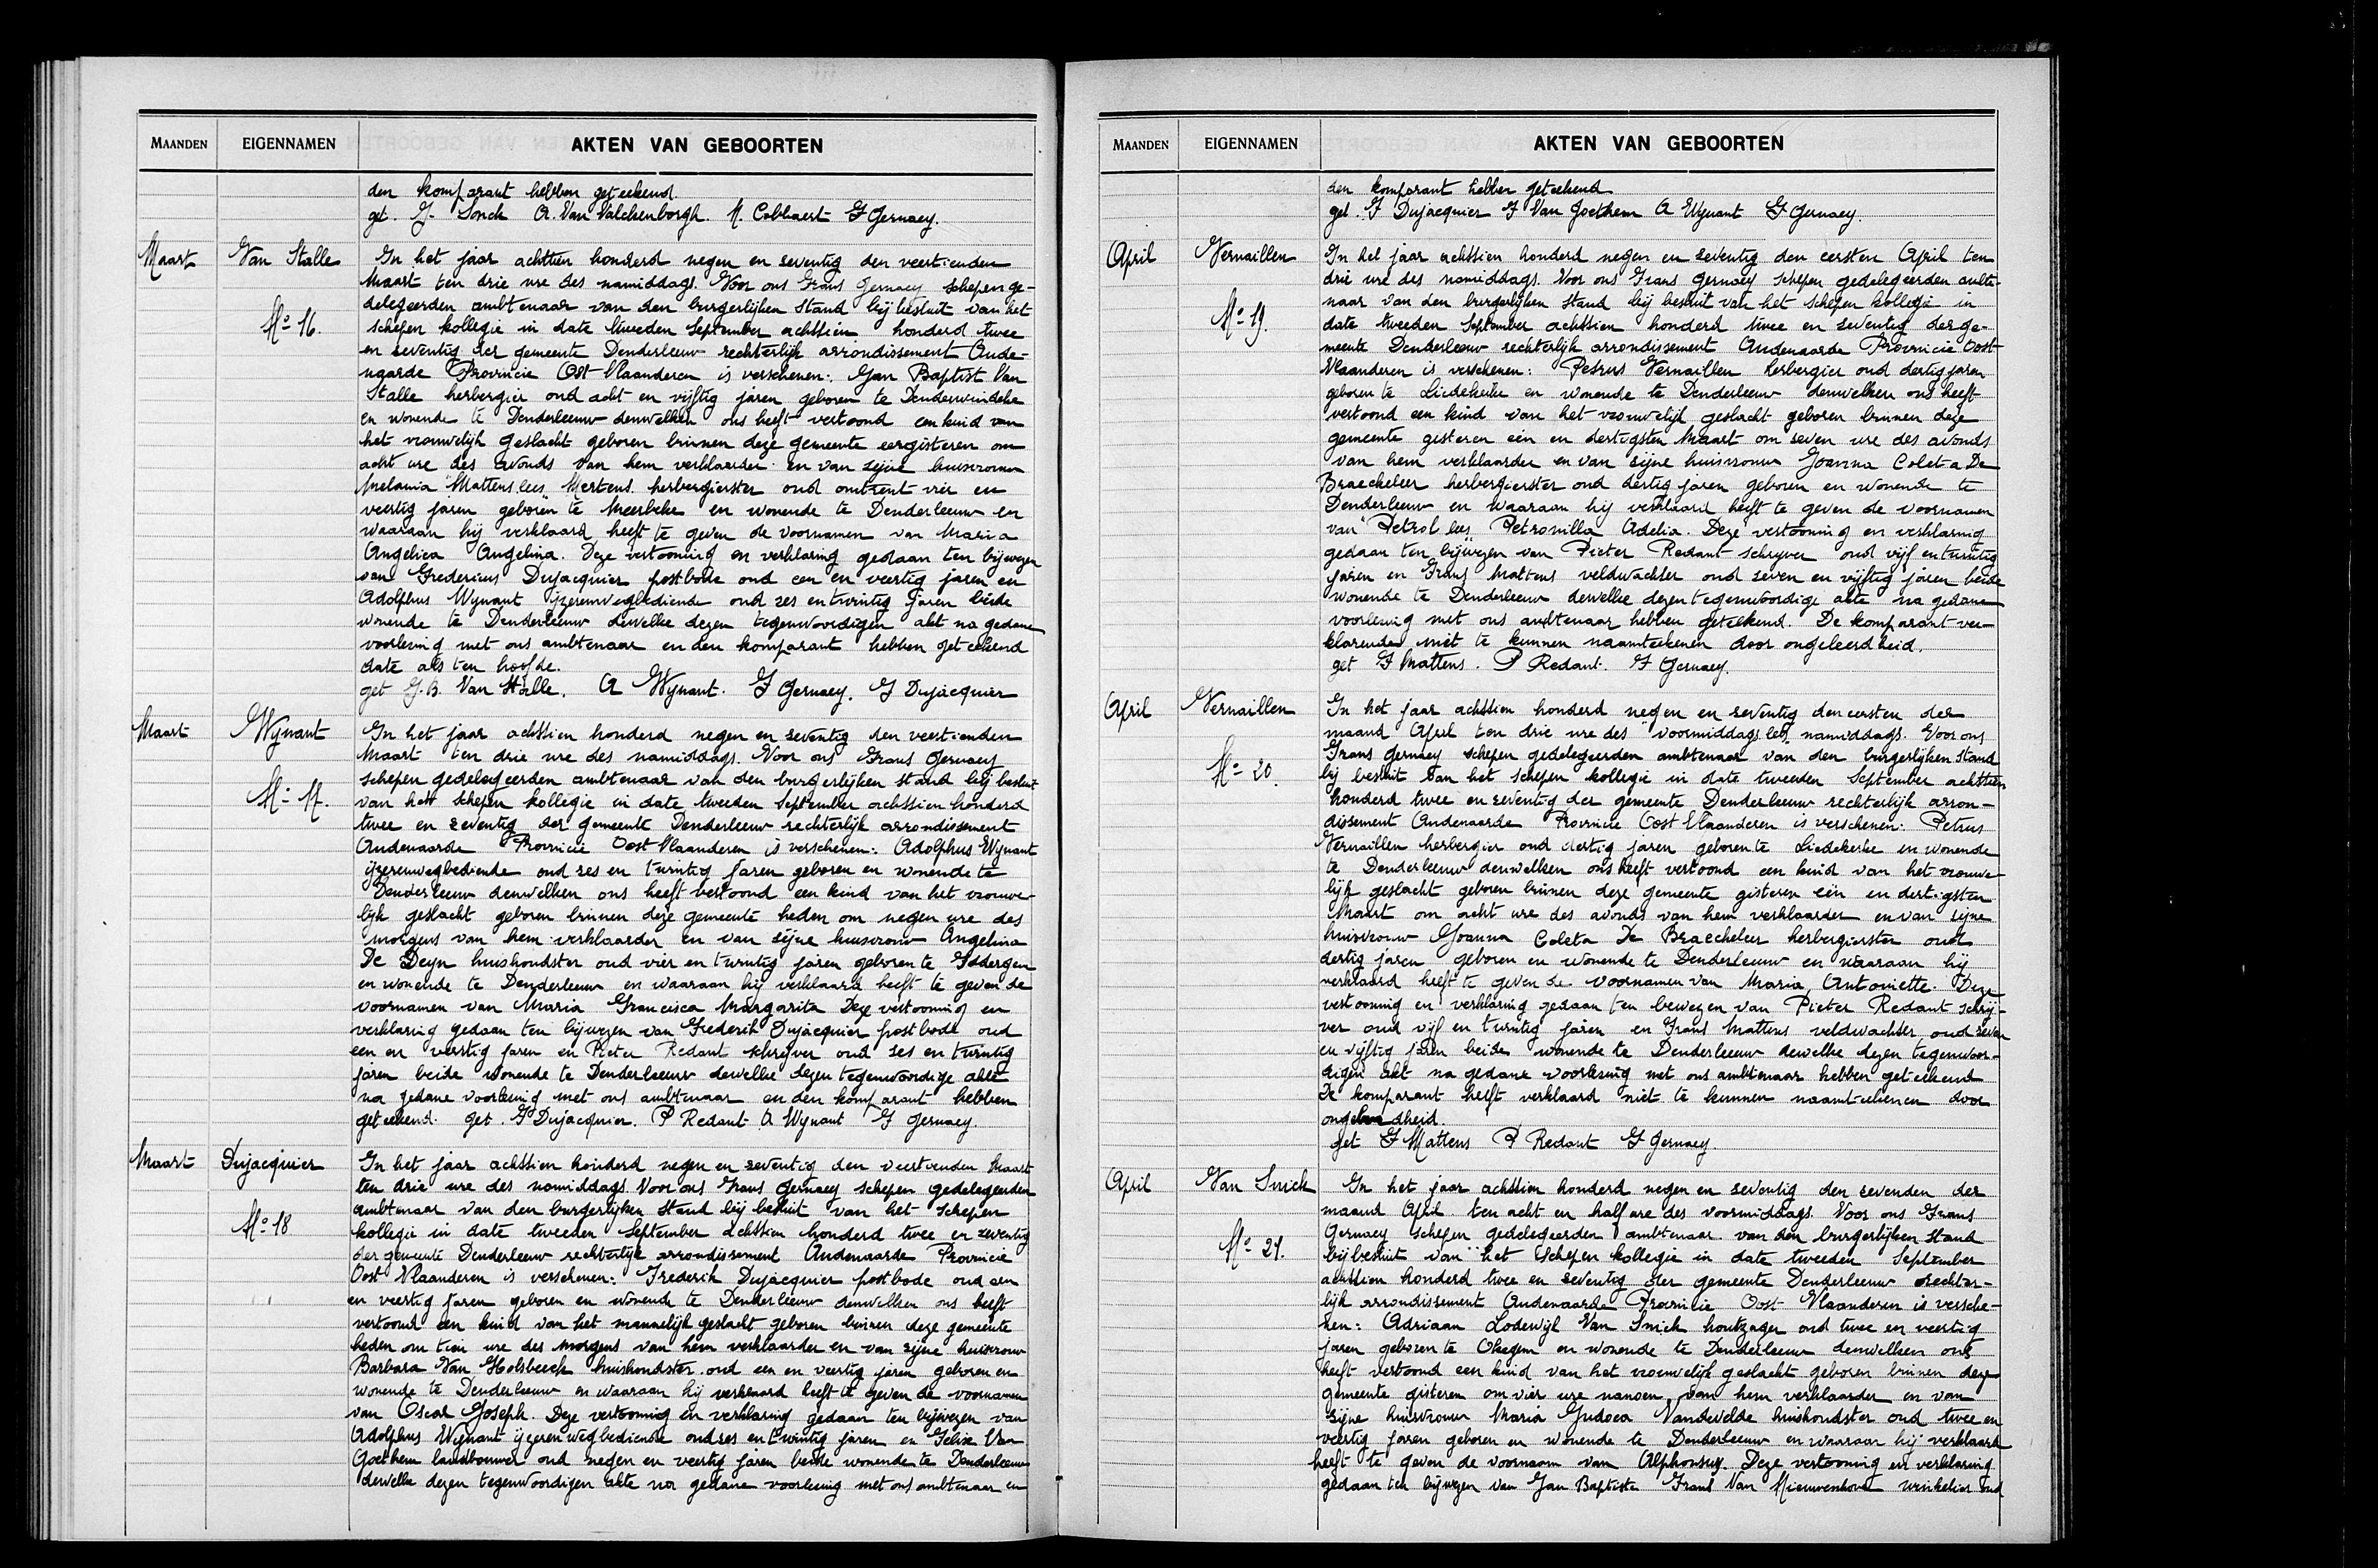 MAANDEN EIGENNAMEN AKTEN VAN GEBOORTEN
den komparant hebben geteekend
get. J. Sonck A. Van Valckenborgh. M. Cobbaert F Gernaey.
Maart Van Stalle
No 16.
In het jaar achttien honderd negen en seventig den veertienden
Maart ten drie ure des namiddags. Voor ons Frans Gernaey schepen ge-
delegeerden ambtenaar van den burgerlijken stand bij besluit van het
schepen kollegie in date tweeden September achttien honderd twee
en seventig der gemeente Denderleeuw rechterlijk arrondissement Aude-
naarde Provincie Oost Vlaanderen is verschenen: Jan Baptist Van
Stalle herbergier oud acht en vijftig jaren geboren te Denderwindeke
en wonende te Denderleeuw denwelken ons heeft vertoond een kind van
het vrouwelijk geslacht geboren binnen deze gemeente eergisteren om
acht ure des avonds van hem verklaarder en van sijne huisvrouw
Melania "Mattens lees" Mertens herbergierster oud omtrent vier en
veertig jaren geboren te Meerbeke en wonende te Denderleeuw en
waaraan hij verklaard heeft te geven de voornamen van Maria
Angelica Angelina. Deze vertooning en verklaring gedaan ten bijwezen
van Fredericus Dujacquier postbode oud een en veertig jaren en
Adolphus Wynant ijzerenwegbediende oud ses en twintig jaren beide
wonende te Denderleeuw dewelke dezen tegenwoordigen akt na gedane
voorlezing met ons ambtenaar en den komparant hebben geteekend
date als ten hoofde.
get J.B. Van Stalle. A Wynant. F Gernaey. F Dujacquier
Maart Wynant
No 17.
In het jaar achttien honderd negen en seventig den veertienden
Maart ten drie ure des namiddags. Voor ons Frans Gernaey
schepen gedelegeerden ambtenaar van den burgerlijken stand bij besluit
van het schepen kollegie in date tweeden September achttien honderd
twee en zeventig der gemeente Denderleeuw rechterlijk arrondissement
Audenaarde Provincie Oost Vlaanderen is verschenen: Adolphus Wynant
ijzerenwegbediende oud ses en twintig jaren geboren en wonende te
Denderleeuw denwelken ons heeft vertoond een kind van het vrouwe-
lijk geslacht geboren binnen deze gemeente heden om negen ure des
morgens van hem verklaarder en van sijne huisvrouw Angelina
De Deyn huishoudster oud vier en twintig jaren geboren te Iddergem
en wonende te Denderleeuw en waaraan hij verklaard heeft te geven de
voornamen van Maria Francisca Margarita Deze vertooning en
verklaring gedaan ten bijwezen van Frederik Dujacquier postbode oud
een en veertig jaren en Pieter Redant schrijver oud ses en twintig
jaren beide wonende te Denderleeuw dewelke dezen tegenwoordige akte
na gedane voorlezing met ons ambtenaar en den komparant hebben
geteekend. get. F Dujacquier. P Redant A Wynant F Gernaey.
Maart Dujacquier
No 18
In het jaar achttien honderd negen en zeventig den veertienden Maart
ten drie ure des namiddags. Voor ons Frans Gernaey schepen gedelegeerden
ambtenaar van den burgerlijken stand bij besluit van het schepen
kollegie in date tweeden September achttien honderd twee en zeventig
der gemeente Denderleeuw rechterlijk arrondissement Audenaarde Provincie
Oost Vlaanderen is verschenen: Frederik Dujacquier postbode oud een
en veertig jaren geboren en wonende te Denderleeuw denwelken ons heeft
vertoond een kind van het mannelijk geslacht geboren binnen deze gemeente
heden om tien ure des morgens van hem verklaarder en van zijne huisvrouw
Barbara Van Holsbeeck huishoudster oud een en veertig jaren geboren en
wonende te Denderleeuw en waaraan hij verklaard heeft te geven de voornamen
van Oscar Joseph. Deze vertooning en verklaring gedaan ten bijwezen van
Adolphus Wynant ijzerenwegbediende oud ses en twintig jaren en Felix Van
Goethem landbouwer oud negen en veertig jaren beide wonende te Denderleeuw
dewelke dezen tegenwoordigen akte na gedane voorlezing met ons ambtenaar en
MAANDEN EIGENNAMEN AKTEN VAN GEBOORTEN
den komparant hebben geteekend
get. F Dujacquier F Van Goethem A Wynant F Gernaey.
April Vernaillen
No 19.
In het jaar achttien honderd negen en zeventig den eersten April ten
drie ure des namiddags. Voor ons Frans Gernaey schepen gedelegeerden ambte-
naar van den burgerlijken stand bij besluit van het schepen kollegie in
date tweeden September achttien honderd twee en seventig der ge-
meente Denderleeuw rechterlijk arrondissement Audenaarde Provincie Oost-
Vlaanderen is verschenen: Petrus Vernaillen herbergier oud dertig jaren
geboren te Liedekerke en wonende te Denderleeuw denwelken ons heeft
vertoond een kind van het vrouwelijk geslacht geboren binnen deze
gemeente gisteren een en dertigsten Maart om seven ure des avonds
van hem verklaarder en van sijne huisvrouw Joanna Coleta De
Braecheleer herbergierster oud dertig jaren geboren en wonende te
Denderleeuw en waaraan hij verklaard heeft te geven de voornamen
van "Petrol lees" Petronilla Adelia. Deze vertooning en verklaring
gedaan ten bijwezen van Pieter Redant schryver oud vijf en twintig
jaren en Frans Mattens veldwachter oud seven en vijftig jaren beide
wonende te Denderleeuw dewelke dezen tegenwoordige akte na gedane
voorlezing met ons ambtenaar hebben geteekend. De komparant ver-
klarende niet te kunnen naamteekenen door ongeleerdheid.
get F Mattens. P Redant. F Gernaey.
April Vernaillen
No 20.
In het jaar achttien honderd negen en seventig den eersten der
maand April ten drie ure des "voormiddags lees" namiddags. Voor ons
Frans Gernaey schepen gedelegeerden ambtenaar van den burgerlijken stand
bij besluit van het schepen kollegie in date tweeden September achttien
honderd twee en seventig der gemeente Denderleeuw rechterlijk arron-
dissement Audenaarde Provincie Oost Vlaanderen is verschenen: Petrus
Vernaillen herbergier oud dertig jaren geboren te Liedekerke en wonende
te Denderleeuw denwelken ons heeft vertoond een kind van het vrouwe-
lijk geslacht geboren binnen deze gemeente gisteren een en dertigsten
Maart om acht ure des avonds van hem verklaarder en van sijne
huisvrouw Joanna Coleta De Braecheleer herbergierster oud
dertig jaren geboren en wonende te Denderleeuw en waaraan hij
verklaard heeft te geven de voornamen van Maria Antoniette. Deze
vertooning en verklaring gedaan ten bewezen van Pieter Redant schrij-
ver oud vijf en twintig jaren en Frans Mattens veldwachter oud seven
en vijftig jaren beide wonende te Denderleeuw dewelke dezen tegenwoor-
digen akt na gedane voorlesing met ons ambtenaar hebben geteekend
De komparant heeft verklaard niet te kunnen naamteekenen door
ongeleerdheid.
get F Mattens P Redant F Gernaey.
April Van Snick
No 21.
In het jaar achttien honderd negen en seventig den sevenden der
maand April ten acht en half ure des voormiddags. Voor ons Frans
Gernaey schepen gedelegeerden ambtenaar van den burgerlijken stand
bij besluit van het schepen kollegie in date tweeden September
achttien honderd twee en seventig der gemeente Denderleeuw rechter-
lijk arrondissement Audenaarde Provincie Oost Vlaanderen is versche-
nen: Adriaan Lodewijk Van Snick houtzager oud twee en veertig
jaren geboren te Okegem en wonende te Denderleeuw denwelken ons
heeft vertoond een kind van het vrouwelijk geslacht geboren binnen deze
gemeente gisteren om vier ure nanoen van hem verklaarder en van
zijne huisvrouw Maria Judoca Vandevelde huishoudster oud twee en
veertig jaren geboren en wonende te Denderleeuw en waaraan hij verklaard
heeft te geven de voornaam van Alphonsus. Deze vertooning en verklaring
gedaan ten bijwezen van Jan Baptiste Frans Van Nieuwenhove winkelier oud